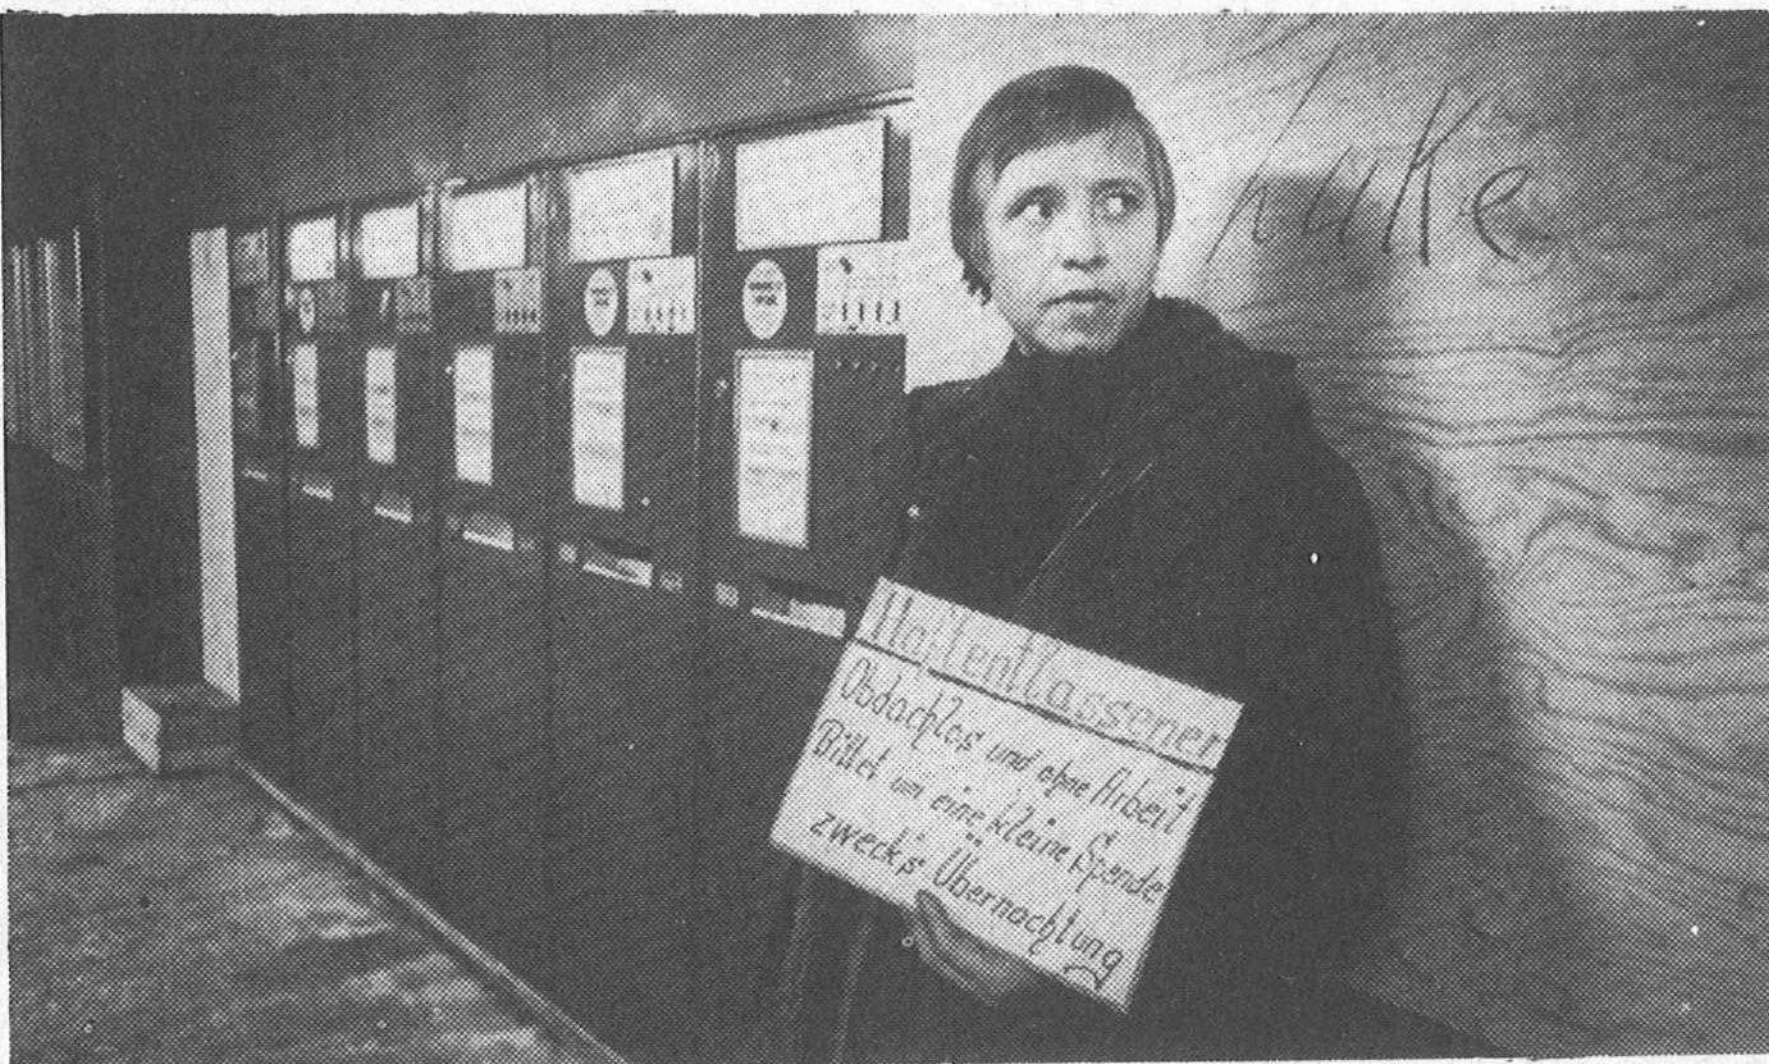 Haftentlassener
Obdachlos und ohne Arbeit
Bittet um eine kleine Spende
zweck's Übernachtung